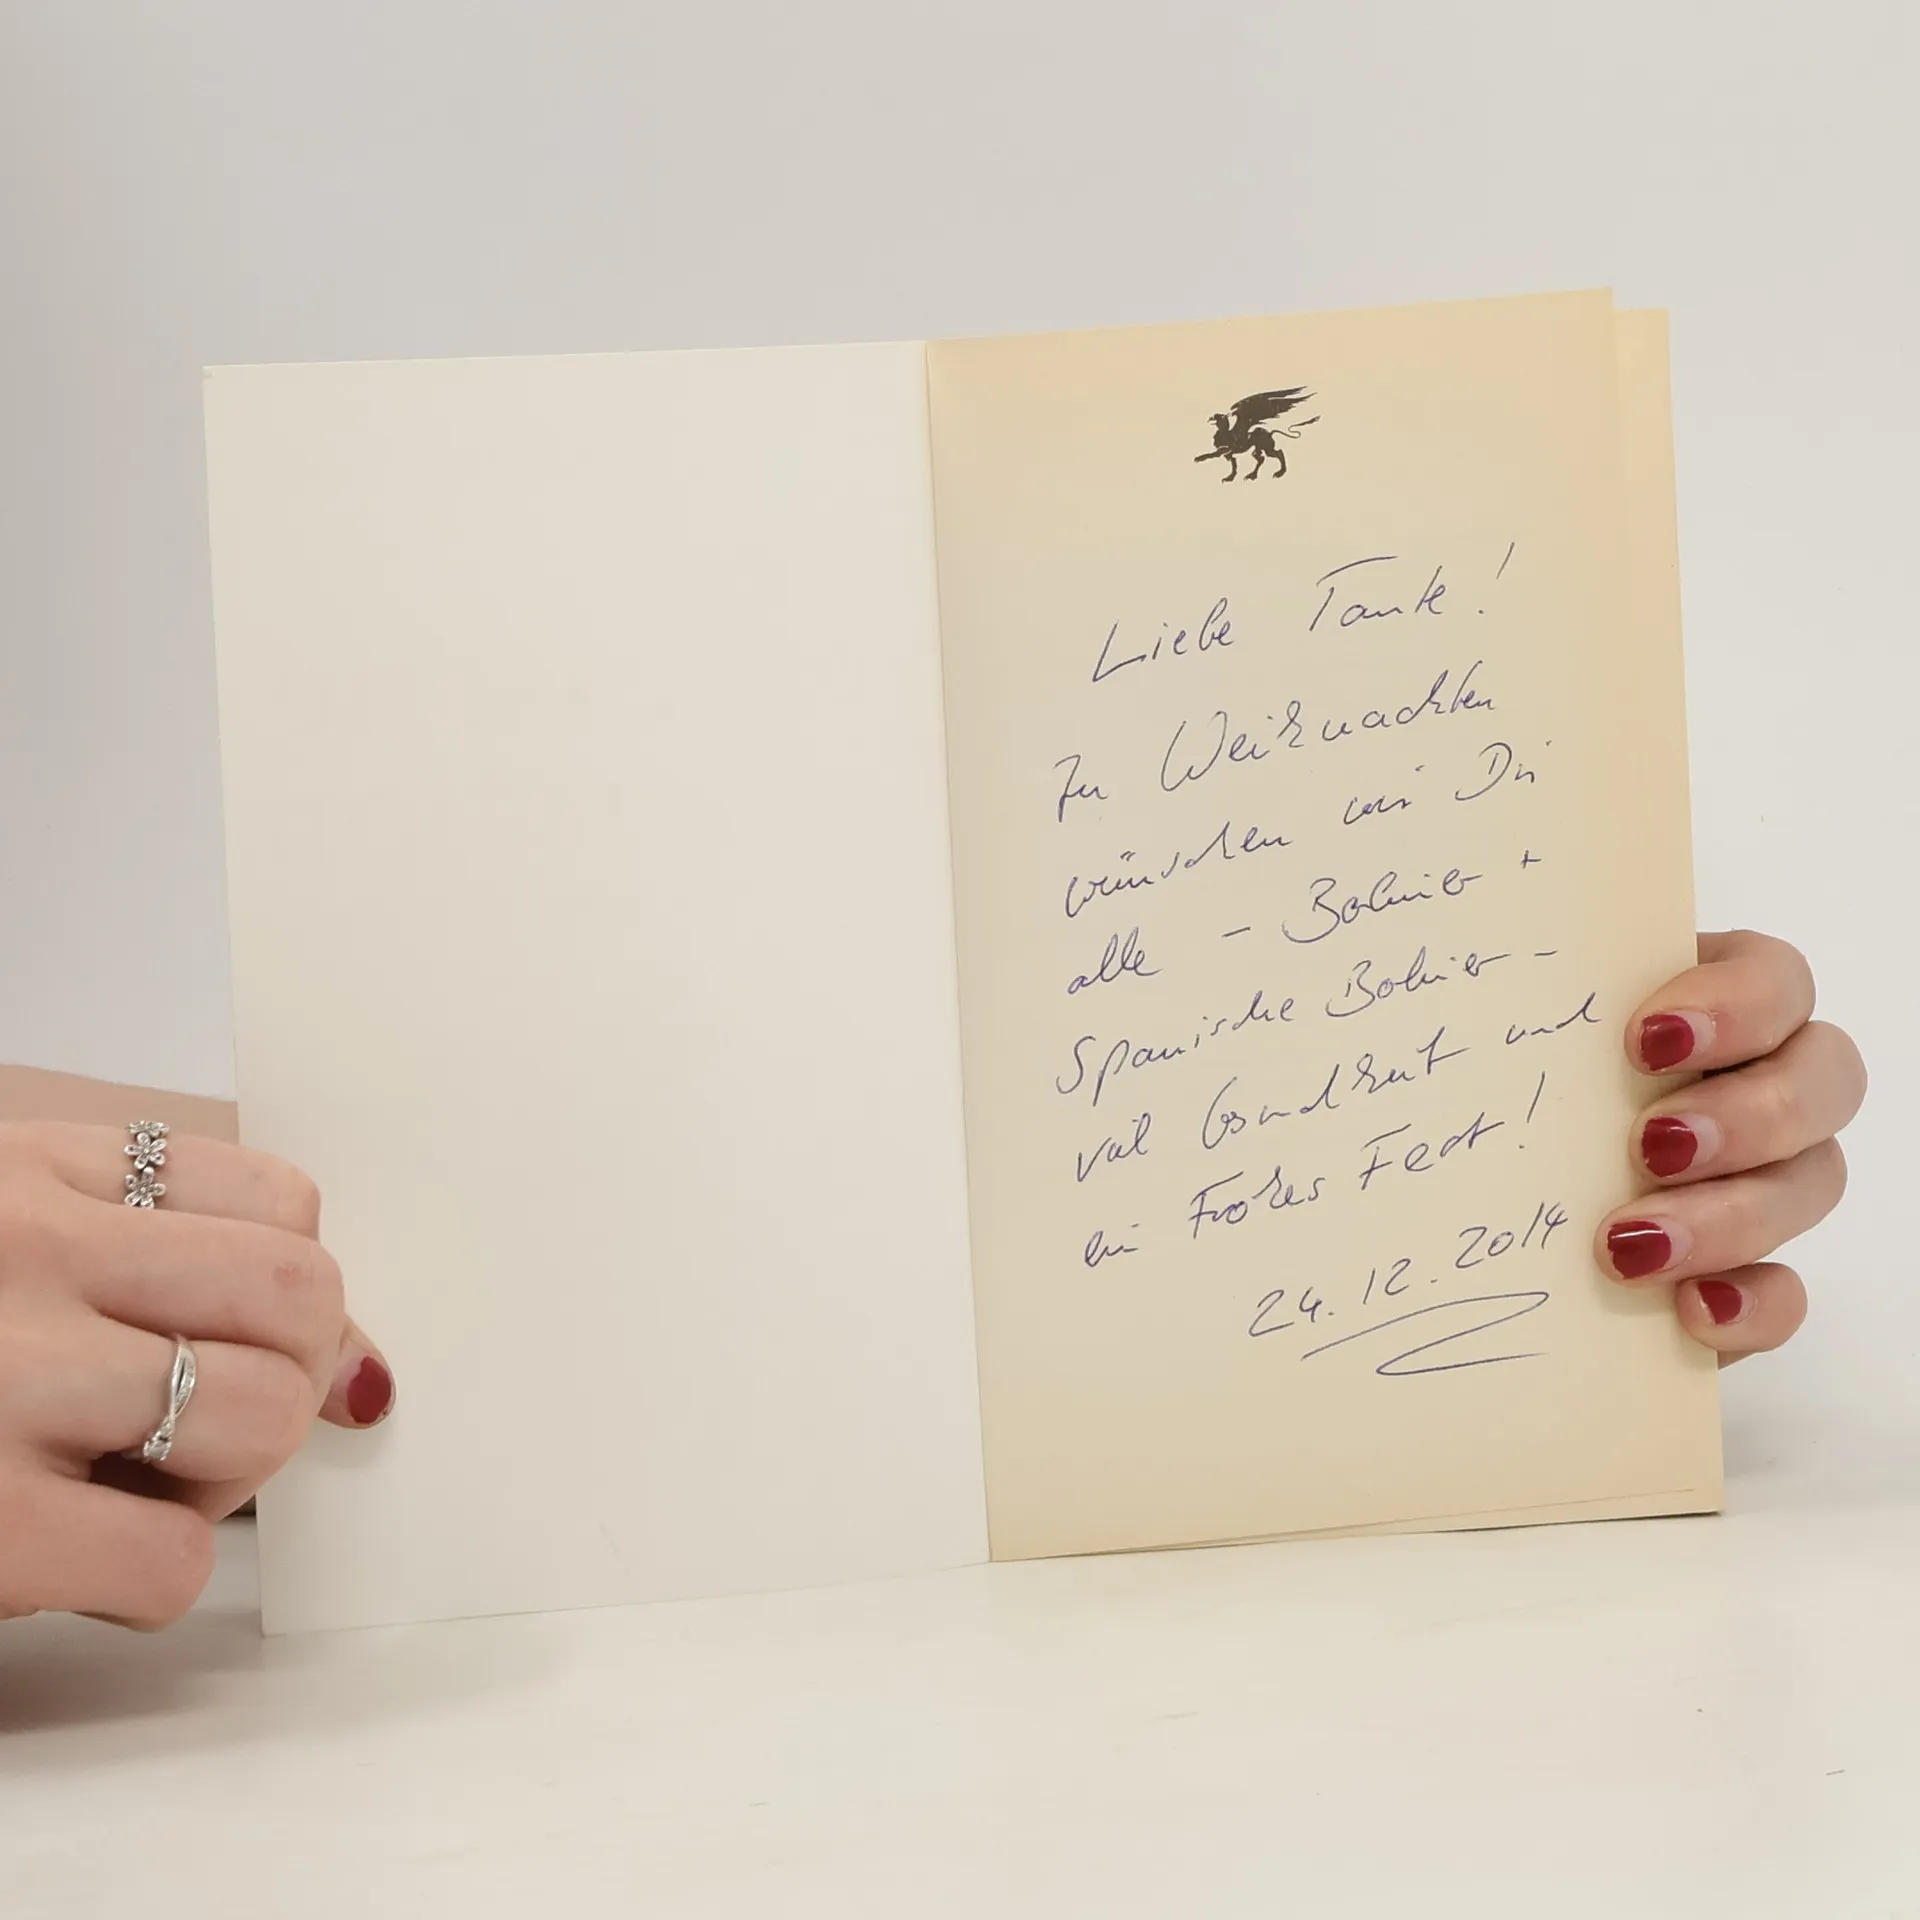 Liebe Tante!
Zu Weihnachten
wünschen wir Dir
alle - Berliner +
Spanische Berliner -
viel Gesundheit und
ein Frohes Fest!
24.12.2014